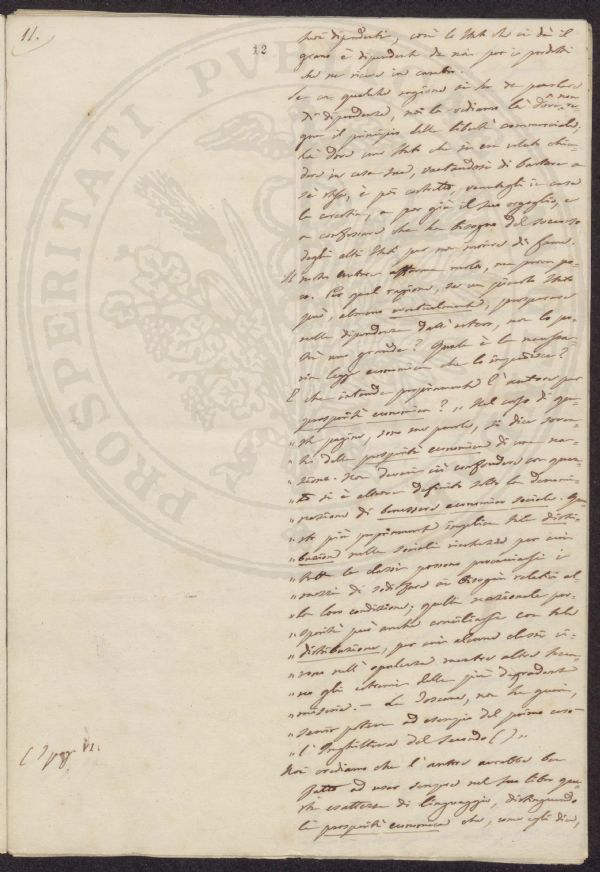 11.
12
noi dipendenti, così lo Stato che ci dà il
grano è dipendente da noi per i prodotti
che ne riceve in cambio.
Se con qualche ragione si ha da parlare
di dipendenza, noi la vediamo là dove non re-
gna il principio della libertà commerciale,
là dove uno Stato che si era voluto chiu-
dere in casa sua, vantandosi di bastare a
sè stesso, è poi costretto, venutagli in casa
la carestia, a por giù il suo orgoglio, e
a confessare che ha bisogno del soccorso
degli altri Stati per non morire di fame.
Il nostro autore afferma molto, ma prova po-
co. Per qual ragione, se un piccolo Stato
può, almeno eventualmente, prosperare
nella dipendenza dall'estero, non lo po-
trà uno grande? Quale è la necessa-
ria legge economica che lo impedisce?
E che intende propriamente l'autore per
prosperità economica? „ Nel corso di que-
„ ste pagine, sono sue parole, si dice soven-
„ te della prosperità economica di una na-
„ zione. Non devesi ciò confondere con quan-
„ to si è altrove definito sotto la denomi-
„ nazione di benessere economico sociale. Que-
„ sto più propriamente implica tale distri-
„ buzione nella sociale ricchezza per cui
„ tutte le classi possano procacciarsi i
„ mezzi di sodisfare ai bisogni relativi al-
„ la loro condizione; quella nazionale pro-
„ sperità può anche conciliarsi con tale
„ distribuzione, per cui alcune classi vi-
„ vono nell'opulenza mentre altre toc-
„ no gli estremi della più degradante
„ miseria. — La Toscana, non ha guari,
„ servir poteva ad esempio del primo caso
„ l'Inghilterra del secondo ( ) „
( ) pag. VI.
Noi crediamo che l'autore avrebbe ben
fatto ad usar sempre nel suo libro que-
sta esattezza di linguaggio, distinguendo
la prosperità economica che, come egli dice,